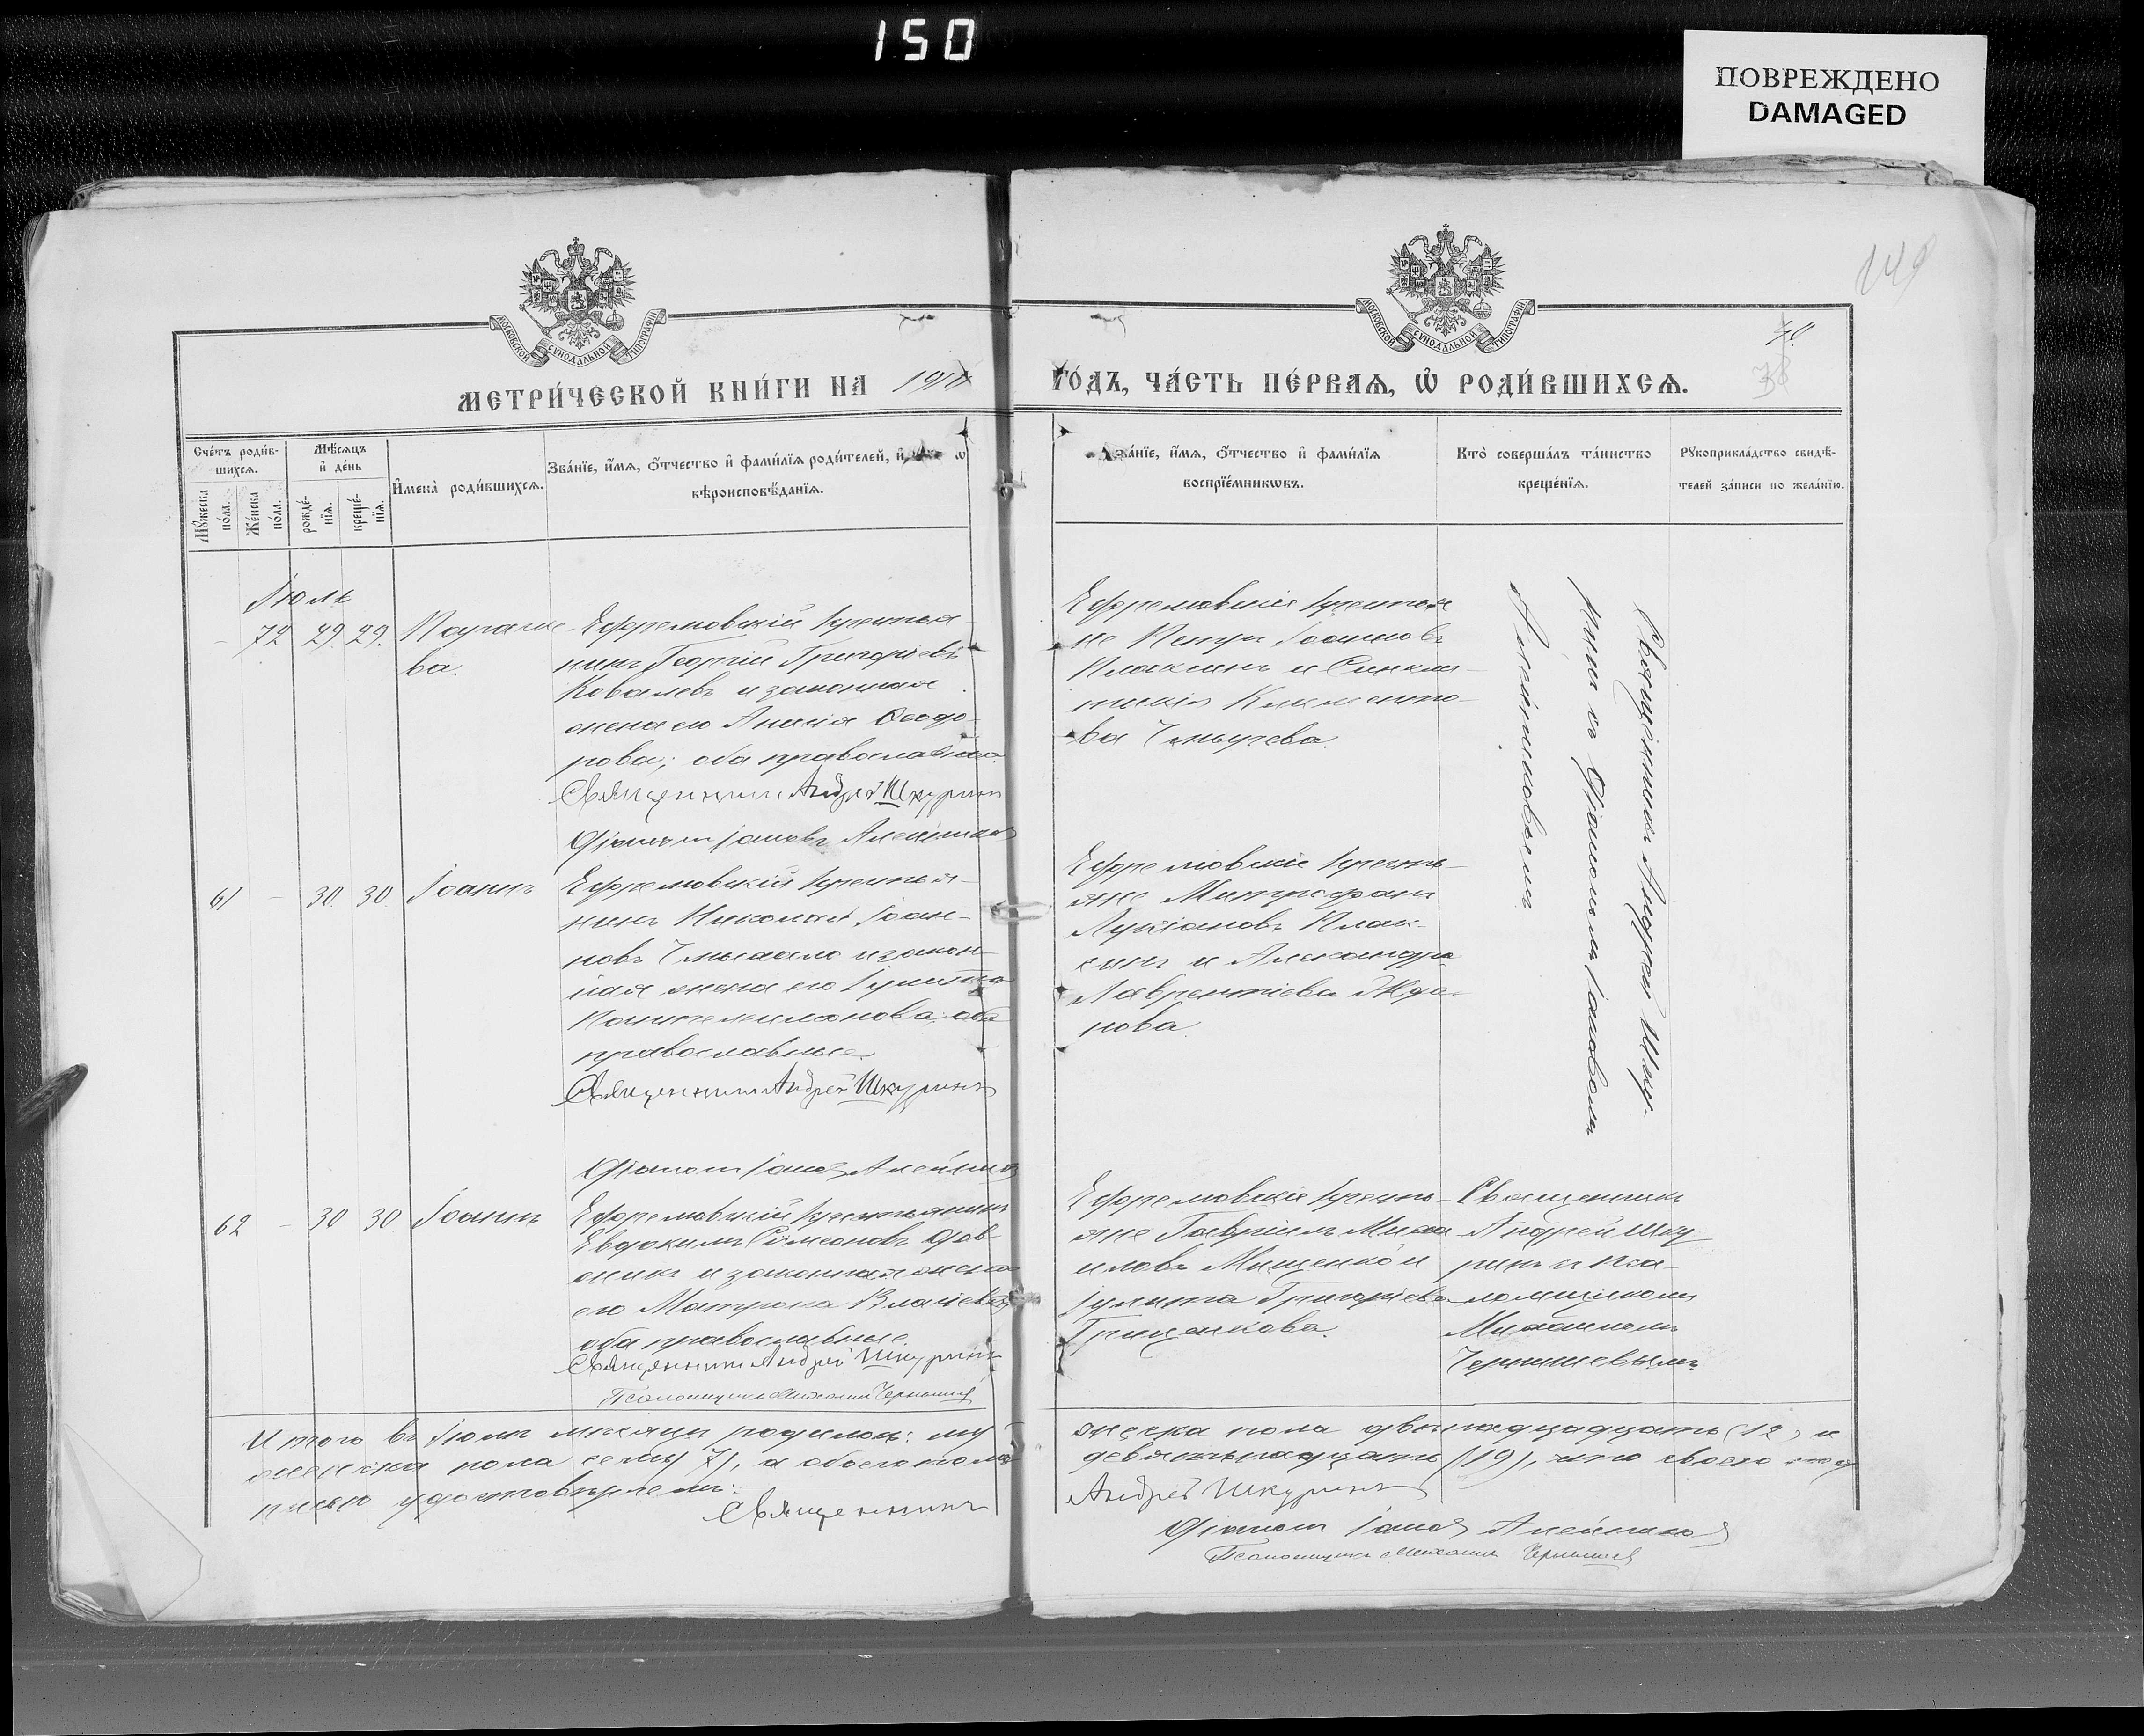 150
ПОВРЕЖДЕНО
DAMAGED
149
МОСКОВСКОЙ СѴНОДАЛЬНОЙ ТИПОГРАФІИ
МОСКОВСКОЙ СѴНОДАЛЬНОЙ ТИПОГРАФІИ
40
38
МЕТРИ́ЧЕСКОЙ КНИ́ГИ НА 1910
ГО́ДЪ, ЧА́СТЬ ПЕ́РВАѦ, Ѡ҆ РОДИ́ВШИХСѦ.
Сче́тъ роди́в-
шихсѧ.
Мꙋ́жеска по́ла.
Же́нска по́ла.
Мѣ́сѧцъ
и҆ де́нь
рожде́-
нїѧ.
креще́-
нїѧ.
И҆мена̀ роди́вшихсѧ.
Зва́нїе, и҆́мѧ, ѻ҆́тчество и҆ фами́лїѧ роди́телей, и҆
вѣроисповѣ́данїѧ.
Зва́нїе, и҆́мѧ, ѻ҆́тчество и҆ фами́лїѧ
воспрїе́мникѡвъ.
Кто̀ соверша́лъ та́инство
креще́нїѧ.
Рꙋкоприкла́дство свидѣ́-
телей за́писи по жела́нїю.
Іюль
- 72 29. 29.
ва.
Ефремовскій крестья-
нинъ Георгій Григоріевъ
Ковалевъ и законная
жена его Анисія Ѳеодо-
рова; оба православные.
Священникъ Андрей Шкуринъ
Діаконъ Іаковъ Алейников
Ефремовскіе крестья
не Петръ Іоанновъ
Плаксинъ и Синкли-
тикія Клименто-
ва
Священникъ Андрей Шку-
ринъ съ Діакономъ Іаковомъ
Алейниковымъ
61 - 30. 30. Іоаннъ
Ефремовскій крестья-
нинъ Николай Іоан-
новъ и закон-
ная жена его Іулитта
Пантелеимонова; оба
православные.
Священникъ Андрей Шкуринъ
Діаконъ Іаков Алейников
Ефремовскіе кресть-
яне Митрофанъ
Лукіановъ Плак-
синъ и Александра
Лаврентіева Жда-
нова.
62 - 30 30 Іоаннъ
Ефремовскій крестьянинъ
Евдокимъ Симеоновъ Дов-
и законная жена
его Матрона Власіева;
оба православные.
Священникъ Андрей Шкуринъ
Псаломщикъ Михаилъ Чернышев
Ефремовскіе кресть-
яне Гавріилъ Миха
иловъ Мищенко и
Іулитта Григоріева
Грищенкова.
Священникъ
Андрей Шку
ринъ съ пса-
ломщикомъ
Михаиломъ
Чернышевымъ
Итого въ Іюлѣ мѣсяцѣ родилось: му
жеска пола двѣнадцадцать (12) и
женска пола семь (7), а обоего пола
девятьнадцать (19), что своею под
писью удостовѣряемъ:
Священникъ
Андрей Шкуринъ
Діаконъ Іаков Алейников
Псаломщикъ Михаилъ Чернышев